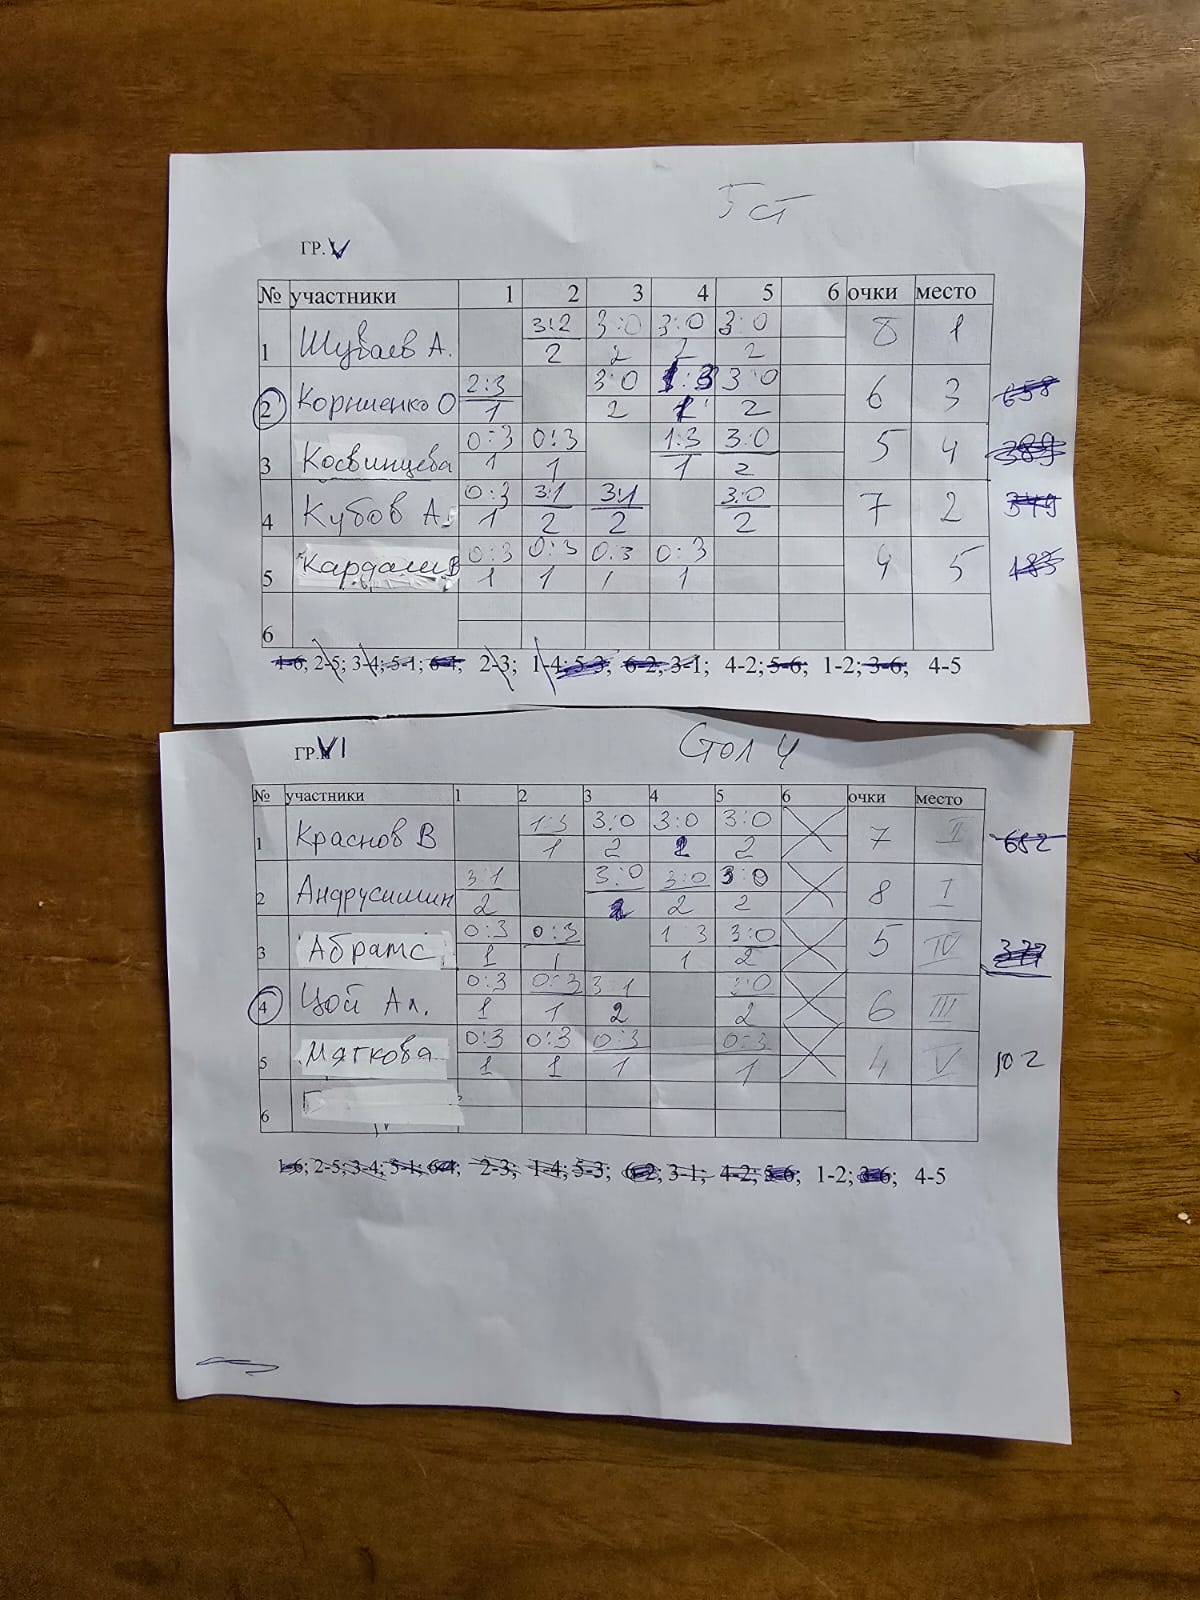 5 ст
ГР. V
№ участники 1 2 3 4 5 6 очки место
1 Шуваев А. 3:2 3:0 3:0 3:0 8 1
2 2 2 2
2 Корниенко О 2:3 3:0 1:3 3:0 6 3 658
1 2 1 2
3 Косвинцева 0:3 0:3 1:3 3:0 5 4 389
1 1 1 2
4 Кубов А. 0:3 3:1 3:1 3:0 7 2 349
1 2 2 2
5 Кардаш В 0:3 0:3 0:3 0:3 4 5 185
1 1 1 1
6
1-6; 2-5; 3-4; 5-1; 6-4; 2-3; 1-4; 5-3; 6-2; 3-1; 4-2; 5-6; 1-2; 3-6; 4-5
ГР. VI
Стол 4
№ участники 1 2 3 4 5 6 очки место
1 Краснов В 1:3 3:0 3:0 3:0 7 II 652
1 2 2 2
2 Андрусишин 3:1 3:0 3:0 3:0 8 I
2 2 2 2
3 Абрамс 0:3 0:3 1:3 3:0 5 IV
1 1 1 2
4 Цой Ал. 0:3 0:3 3:1 3:0 6 III
1 1 2 2
5 Мягкова 0:3 0:3 0:3 0:3 4 V 102
1 1 1 1
6
1-6; 2-5; 3-4; 5-1; 6-4; 2-3; 1-4; 5-3; 6-2; 3-1; 4-2; 5-6; 1-2; 3-6; 4-5